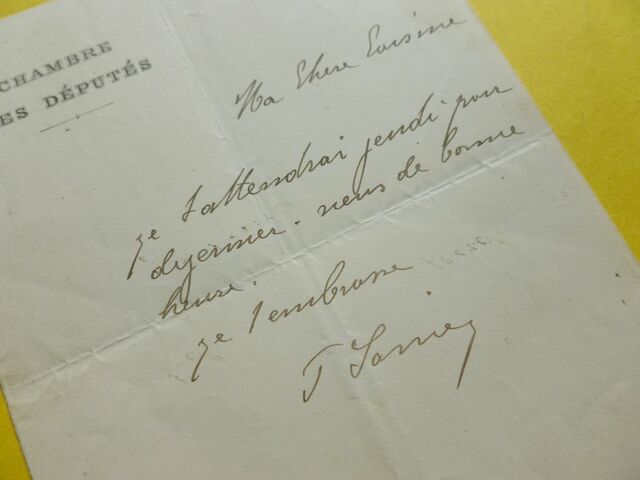 CHAMBRE
ES DÉPUTÉS
Ma Chere Cousine
je t'attendrai jeudi pour
dejeuner. viens de bonne
heure.
je t'embrasse